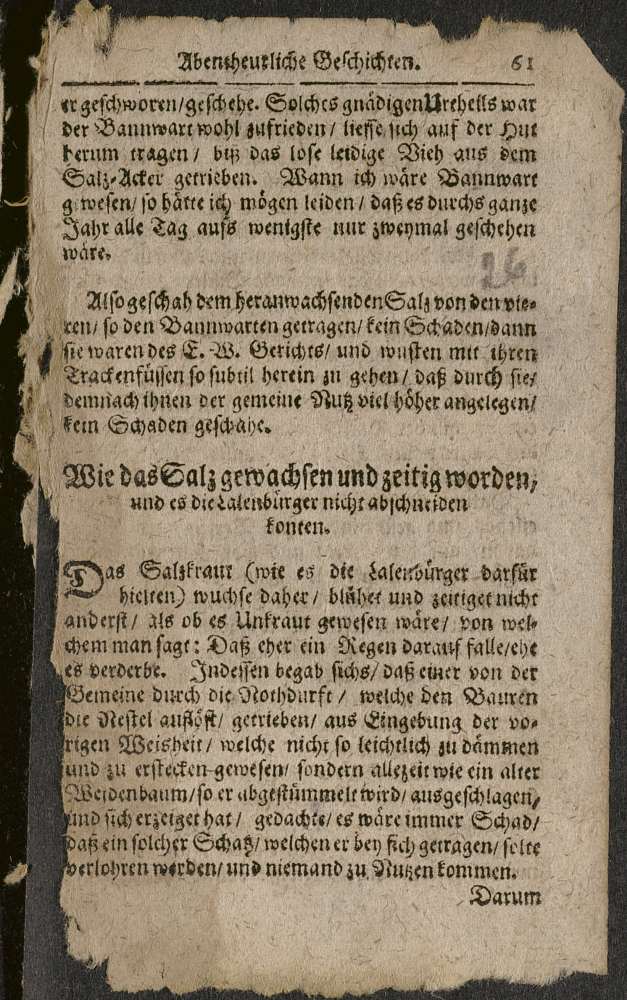 Abentheurliche Geschichten. 61
er geschworen/geschehe. Solches gnädigen Urtheils war
der Bannwart wohl zufrieden/ liesse sich auf der Hut
herum tragen/ biß das lose leidige Vieh aus dem
Saltz-Acker getrieben. Wann ich wäre Bannwart
gewesen/ so hätte ich mögen leiden/ daß es durchs gantze
Jahr alle Tag aufs wenigste nur zweymal geschehen
wäre.
26
Also geschah dem heranwachsenden Saltz von den vie-
ren/ so den Bannwarten getragen/ kein Schaden/dann
sie waren des E. W. Gerichts/ und wusten mit ihren
Trackenfüssen so subtil herein zu gehen/ daß durch sie/
demnach ihnen der gemeine Nutz viel höher angelegen/
kein Schaden geschahe.
Wie das Saltz gewachsen und zeitig worden,
und es die Lalenbürger nicht abschneiden
konten.
Das Saltzkraut (wie es die Lalenbürger darfür
hielten) wuchse daher/ blühet und zeitiget nicht
anderst/ als ob es Unkraut gewesen wäre/ von wel-
chem man sagt: Daß eher ein Regen darauf falle/ehe
es verderbe. Indessen begab sichs/ daß einer von der
Gemeine durch die Nothdurft/ welche den Bauren
die Nestel auflöst/ getrieben/ aus Eingebung der vo-
rigen Weisheit/ welche nicht so leichtlich zu dämmen
und zu erstecken gewesen/ sondern allezeit wie ein alter
Weidenbaum/so er abgestümmelt wird/ ausgeschlagen,
und sich erzeiget hat/ gedachte/ es wäre immer Schad/
daß ein solcher Schatz/ welchen er bey sich getragen/ solte
verlohren werden/ und niemand zu Nutzen kommen.
Darum